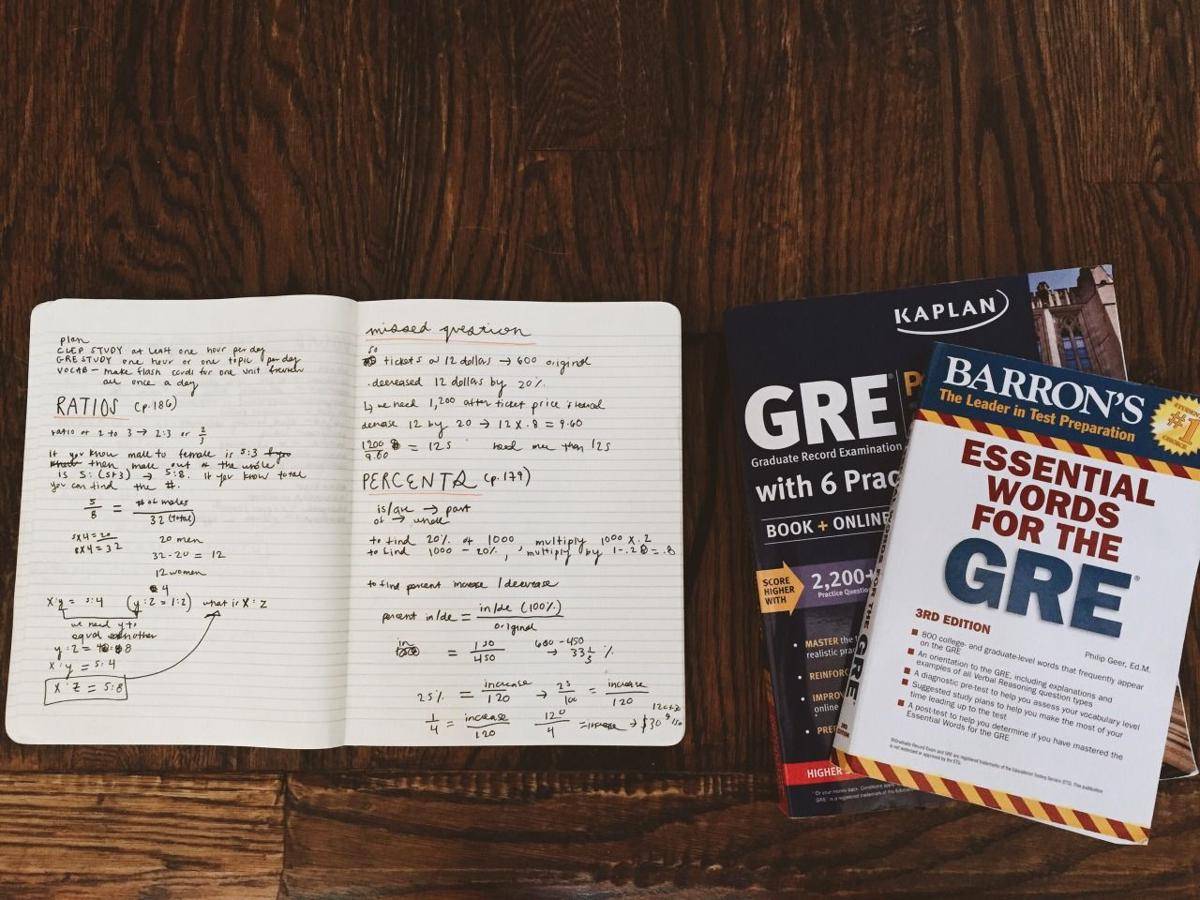 plan
CLEP STUDY at least one hour per day
GRE STUDY one hour or one topic per day
VOCAB - make flash cards for one unit &
all once a day
RATIOS (p.186)
ratio of 2 to 3 → 2:3 or 2/3
if you know male to female is 5:3
then male out of the whole
is 5:(5+3) → 5:8. if you know total
you can find the #.
5/8 = # of males / 32 (total)
5x4=20
8x4=32
20 men
32-20 = 12
12 women
4
x:y = 5:4 (y:z = 1:2) what is x:z
we need y to
equal eachother
y:z = 4:8
x:y = 5:4
x:z = 5:8
missed question
50 tickets at 12 dollars → 600 original
decreased 12 dollars by 20%
↳ we need 1,200 after ticket price
12 by 20 → 12 x .8 = 9.60
1200/9.60 = 125 need more than 125
PERCENTS (p.179)
is/are → part
of → whole
to find 20% of 1000 multiply 1000 x .2
to find 1000 - 20%, multiply by 1-.20=.8
to find percent increase / decrease
percent in/de = in/de (100%) / original
in = 150/450 600-450 → 33 1/3 %
25% = increase/120 → 25/100 = increase/120
1/4 = increase/120 120/4 = increase → $30
KAPLAN
GRE®
Graduate Record Examination
with 6 Prac
BOOK + ONLINE
SCORE
HIGHER
WITH
2,200+
Practice Questio
MASTER the
realistic pra
REINFORC
IMPROV
online
PRE
HIGHER
BARRON'S
The Leader in Test Preparation
#1
ESSENTIAL
WORDS
FOR THE
GRE®
3RD EDITION
Philip Geer, Ed.M.
800 college- and graduate-level words that frequently appear
on the GRE
An orientation to the GRE, including explanations and
examples of all Verbal Reasoning question types
A diagnostic pre-test to help you assess your vocabulary level
Suggested study plans to help you make the most of your
time leading up to the test
A post-test to help you determine if you have mastered the
Essential Words for the GRE
FOR THE GRE